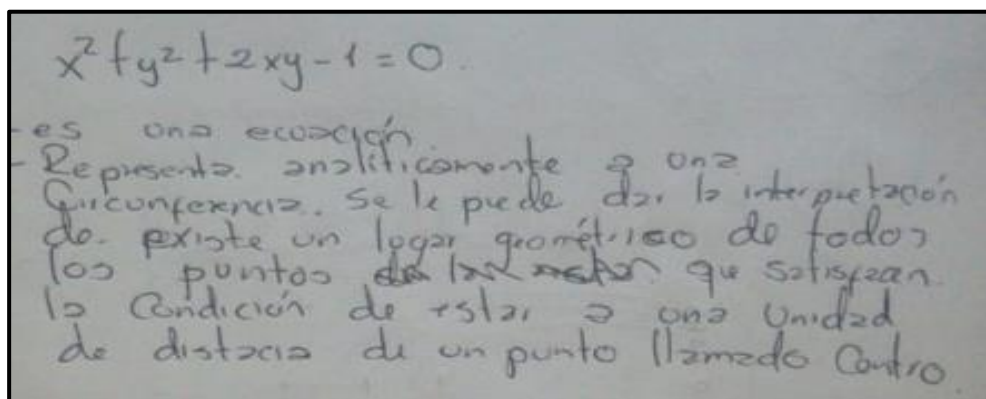 x² + y² + 2xy - 1 = 0.
- es una ecuación
- Representa analíticamente a una
Circunferencia. Se le puede dar la interpretación
de. existe un lugar geométrico de todos
los puntos que satisfacan
la Condición de estar a una Unidad
de distacia de un punto llamado Centro.